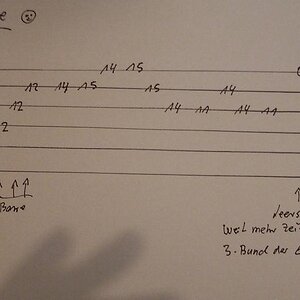 14 15
12 14 15 15 14
12 14 11 14 11
2
Barre
weil mehr Zei
3. Bund der